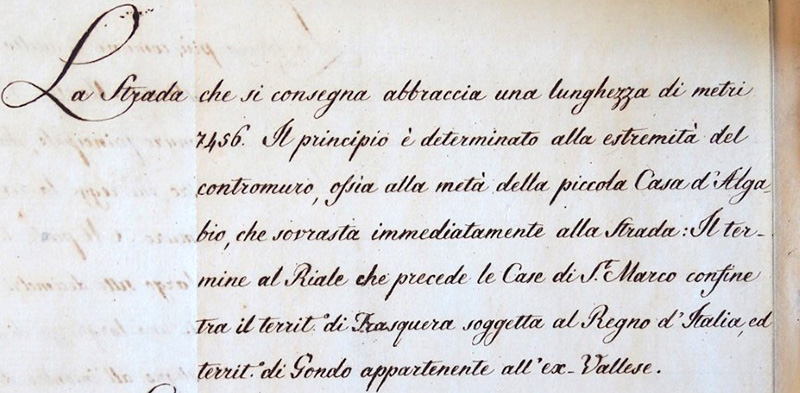 La Strada che si consegna abbraccia una lunghezza di metri
7456. Il principio è determinato alla estremità del
contromuro, ossia alla metà della piccola Casa d'Alga
bio, che sovrasta immediatamente alla Strada: Il ter-
mine al Riale che precede le Case di S.t Marco confine
tra il territ.o di Trasquera soggetta al Regno d'Italia, ed
territ.o di Gondo appartenente all'ex-Vallese.